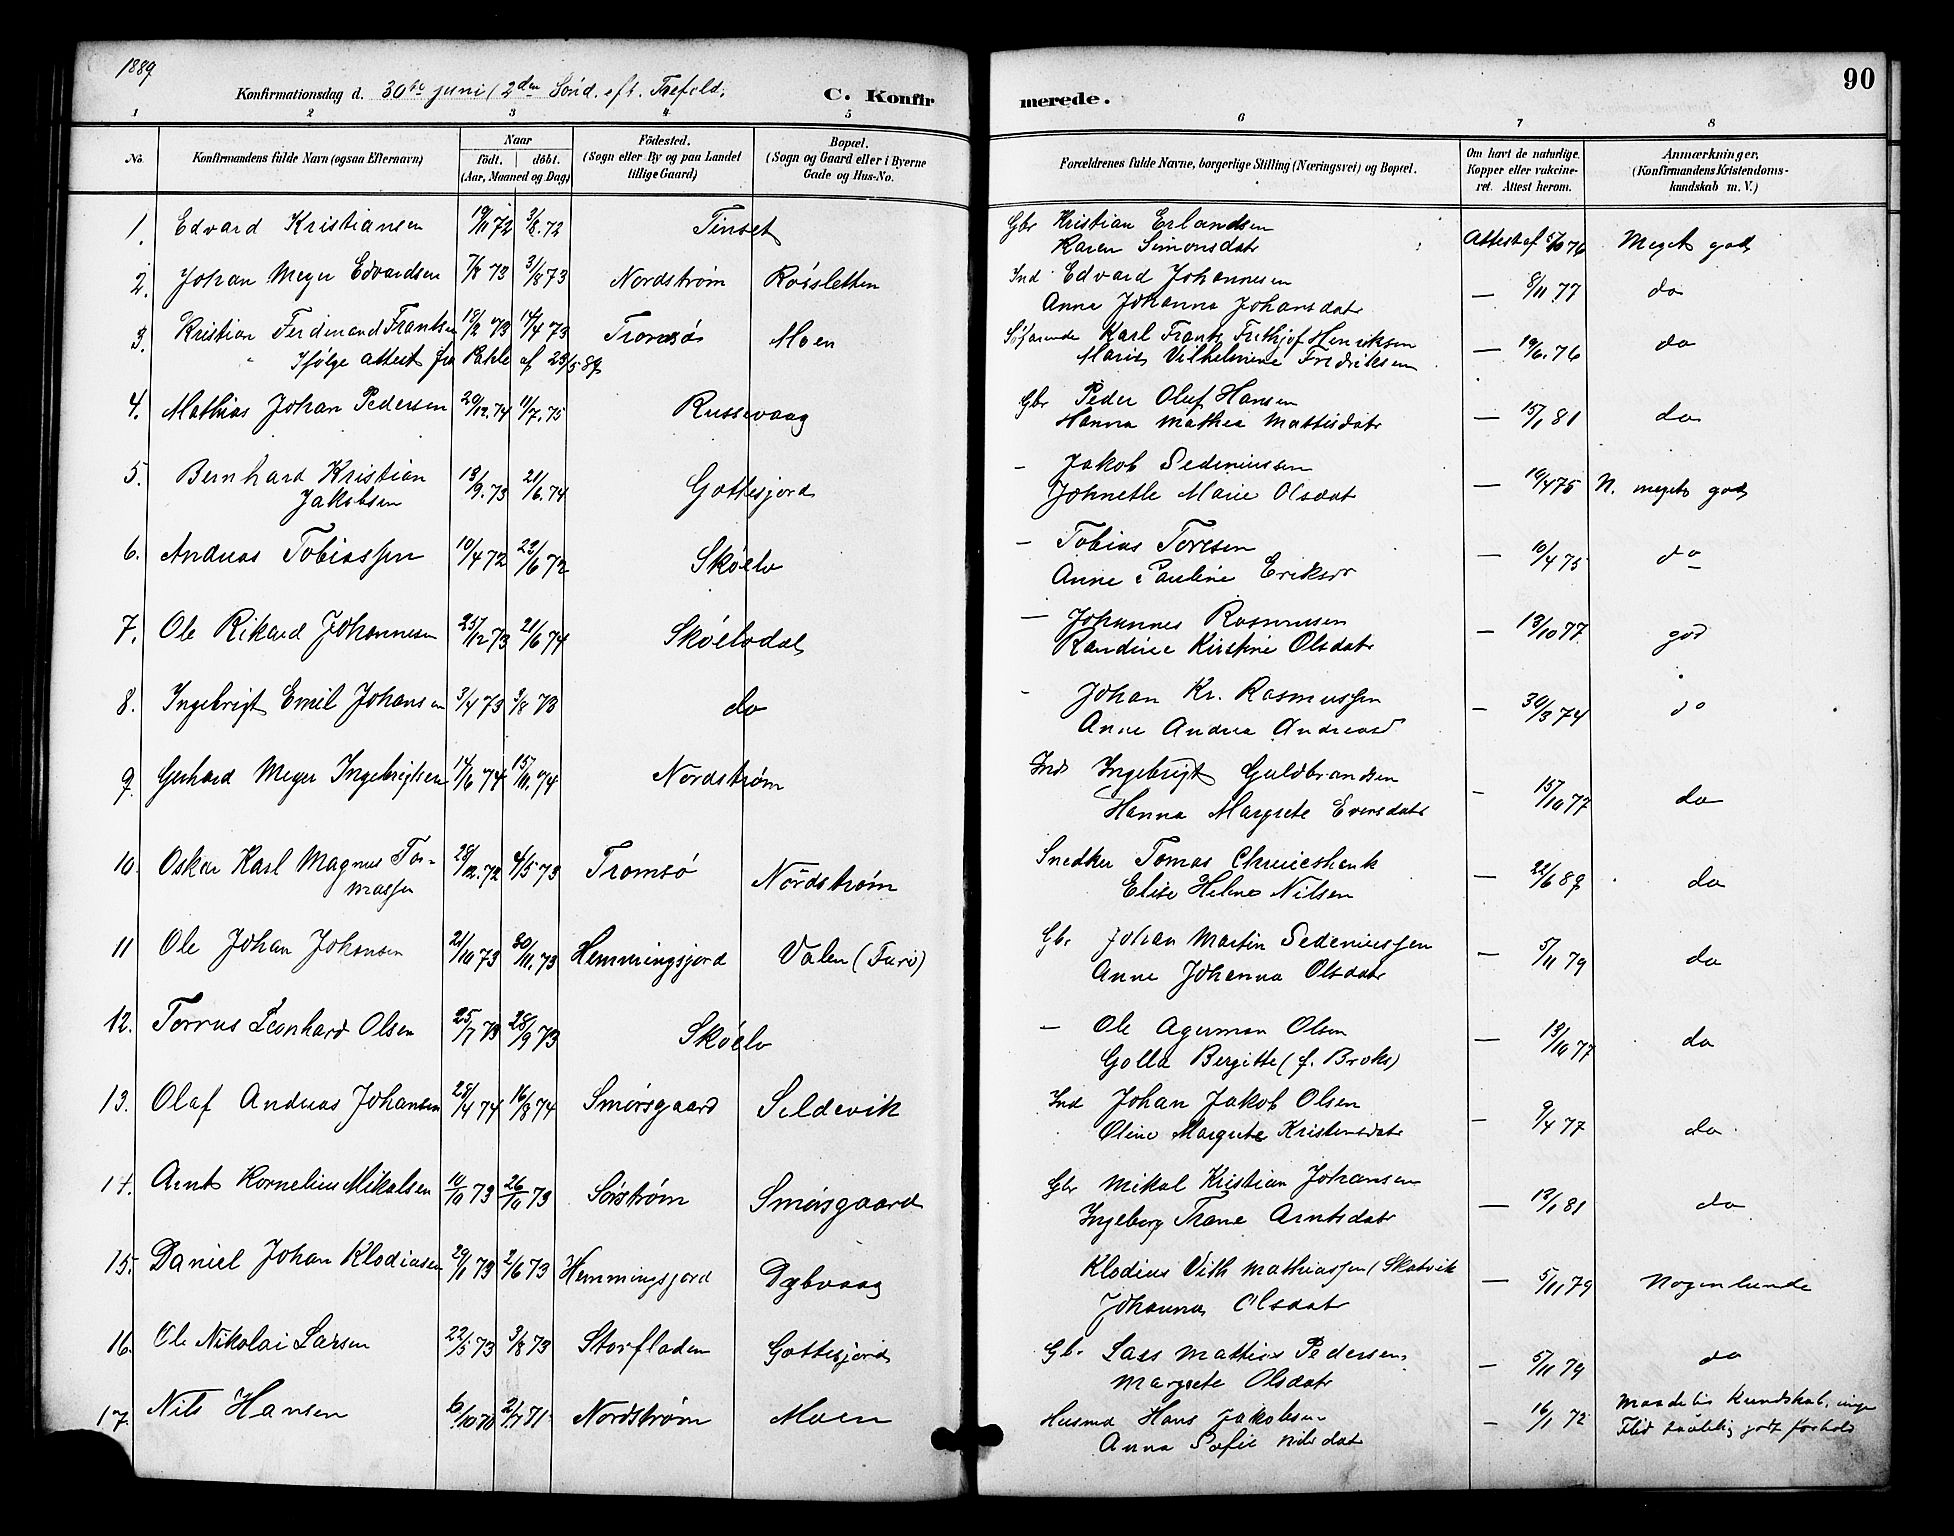 1889
90
Konfirmationsdag d. 30te juni (2den Sönd. eft. Trefold. C. Konfirmerede.
1 2 3 4 5 6 7 8
No. Konfirmandens fulde Navn (ogsaa Efternavn) Naar födt. döbt. (Aar, Maaned og Dag) Födested. (Sogn eller By og paa Landet tillige Gaard) Bopæl. (Sogn og Gaard eller i Byerne Gade og Hus-No. Forældrenes fulde Navne, borgerlige Stilling (Næringsvei) og Bopæl. Om havt de naturlige Kopper eller vakcineret. Attest herom. Anmærkninger. (Konfirmandens Kristendomskundskab m. V.)
1. Edvard Kristiansen 3/8.72 Tinset Gbr Kristian Erlandsen Attest af Meget god
Karen Simonsdatr
2. Johan Meyer Edvardsen 7/8 73 31/8 73 Nordstrøm Røssletten Ind Edvard Johannesen — 8/11 77 do
Anne Johanna Johansdatr
3. Kristian Ferdinand Frantsen 14/4 73 Tromsø Moen Søfarende Karl Frants Frithjof Henriksen — 19/6.76 do
Ifølge attest fra af 23/5 89 Marie Vilhelmine Fredriksen
4. Mathias Johan Pedersen 20/12.74 11/7.75 Russevaag Gbr Peder Oluf Hansen — 15/1 81 do
Hanna Mathea Mattisdatr
5. Bernhard Kristian 13/9.73 21/6.74 Gottesjord - Jakob Sedeniussen — 10/4 75 N. meget god
Jakobsen Johnette Marie Olsdat
6. Andreas Tobiassen 10/4 72 23/6 72 Skøelv - Tobias Toresen — 10/4 75 do
Anne Pauline Eriksdr
7. Ole Rikard Johannesen 25/12 73 21/6 74 Skøelvdal — Johannes Rasmusen — 13/10 77 god
Randine Kirstine Olsdatr
8. Ingebrigt Emil Johansen 3/4 73 3/8 73 do - Johan Kr. Rasmussen — 30/3 74 do
Anne Andrea Andreasd
9. Gerhard Meyer Ingebrigtsen 14/6 74 15/11.74 Nordstrøm Ind Ingebrigt Guldbrandsen - 15/10 77 do
Hanna Margrete Evensdatr
10. Oskar Karl Magnus To- 28/12.72 4/5 73 Tromsø Nordstrøm Snedker Tomas — 22/6 89 do
massen Elise Helene Nilsen
11 Ole Johan Johansen 21/10 73 30/11.73 Hemmingsjord Valen (Furø) Gbr Johan Martin Sedeniussen — 5/11 79 do
Anne Johanna Olsdatr
12. Torvus Leonhard Olsen 25/7 73 28/9 73 Skøelv — Ole Agerman Olsen — 13/10 77 do
Golla Bergitte (f. Broks)
13. Olaf Andreas Johansen 28/4 74 16/8 74 Smørsgaard Sildevik Ind Johan Jakob Olsen - 9/4 77 do
Oline Margrete Kristensdatr
14. Arnt Kornelius Mikalsen 10/10 73 26/10 73 Sørstrøm Smørsgaard Gbr Mikal Kristian Johansen — 13/1 81 do
Ingeborg Trane Arntsdatr
15. Daniel Johan Klodiusen 29/1 73 2/6 73 Hemmingsjord Dybvaag Klodius Vith Mathiassen (Skatvik — 5/11 79 Nogenlunde
Johanna Olsdatr
16. Ole Nikolai Larsen 22/5 73 3/8 73 Storfladen Gottesjord Gbr Lars Mattias Pedersen — 5/11 79 do
Margrete Olsdatr
17. Nils Hansen 6/10 70 2/7 71 Nordstrøm Moen Husmd Hans Jakobsen - 16/1 72 Maadelig Kundskab, inge
Anna Sofie Nilsdatr Flid taalelig godt forhold